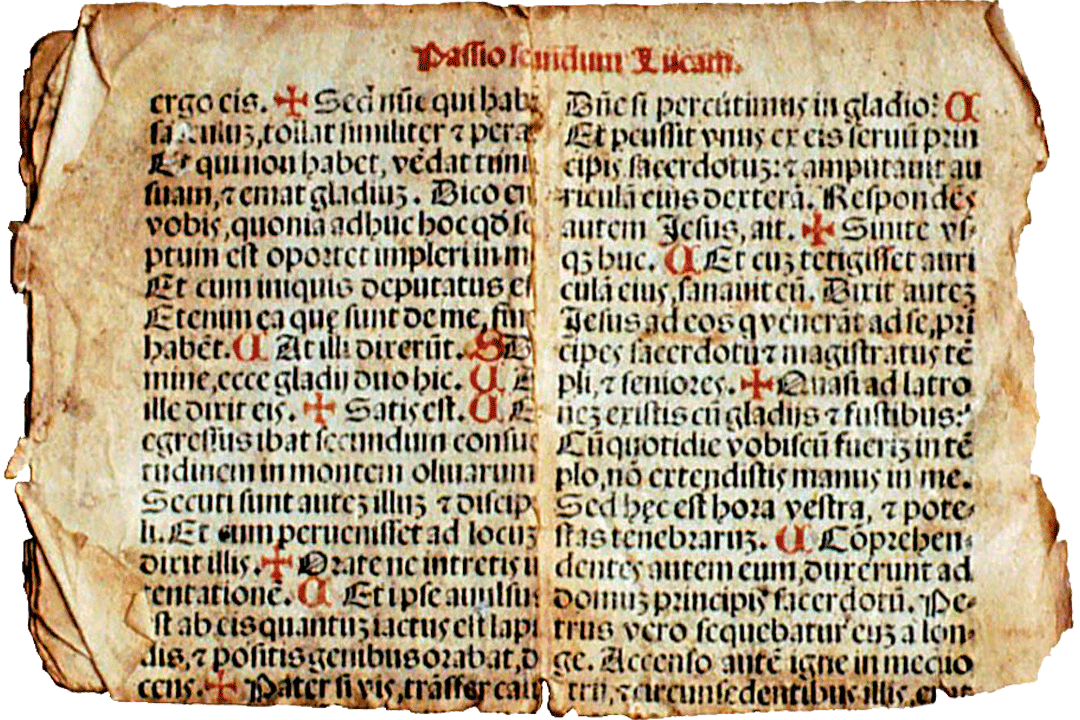 Passio secundum Lucam.
ergo eis. ✠ Sed nūc qui hab
sacculuʒ, tollat similiter ⁊ pera
Et qui non habet, vēdat tuni
suam, ⁊ emat gladiuʒ. Dico eni
vobis, quoniā adhuc hoc qđ sc
ptum est oportet impleri in m
Et cum iniquis deputatus es
Etenim ea quę sunt de me, fin
habēt. C At illi dixerūt. S D
mine, ecce gladij duo hic. C E
ille dixit eis. ✠ Satis est. C E
egressus ibat secundum consue
tudinem in montem oliuarum
Secuti sunt auteʒ illuʒ ⁊ discip
li. Et cum peruenisset ad locuʒ
dixit illis. ✠ Orate ne intretis i
tentationē. C Et ipse auulsus
est ab eis quantuʒ iactus est lapi
dis, ⁊ positis genibus orabat, d
cens. ✠ Pater si vis, trāsfer cali
Dn̄e si percutimus in gladio? C
Et pcussit vnus ex eis seruū prin
cipis sacerdotuʒ: ⁊ amputauit au
riculā eius dexterā. Respondēs
autem Jesus, ait. ✠ Sinite vs-
qʒ huc. C Et cuʒ tetigisset auri
culā eius, sanauit eū. Dixit auteʒ
Jesus ad eos q venerāt ad se, pri
cipes sacerdotū ⁊ magistratus tē
pli, ⁊ seniores. ✠ Quasi ad latro
neʒ existis cū gladijs ⁊ fustibus?
Cū quotidie vobiscū fueriʒ in tē
plo, nō extendistis manus in me.
Sed hęc est hora vestra, ⁊ pote-
stas tenebraruʒ. C Cōprehen-
dentes autem eum, duxerunt ad
domuʒ principis sacerdotū. Pe-
trus vero sequebatur euʒ a lon-
ge. Accenso autē igne in medio
trij, ⁊ circunsedentibus illis, erat